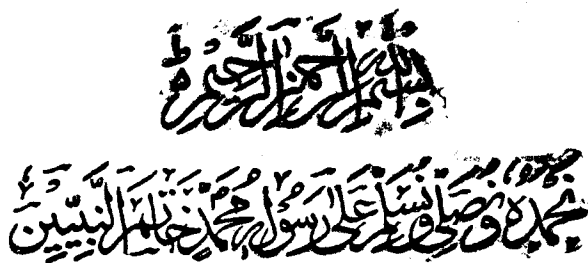 بِسْمِ اللهِ الرَّحْمٰنِ الرَّحِيْمِ ط
نَحْمَدُهٗ وَ نُصَلِّيْ وَ نُسَلِّمُ عَلٰى رَسُوْلِهٖ مُحَمَّدٍ خَاتَمِ النَّبِيِّيْنَ